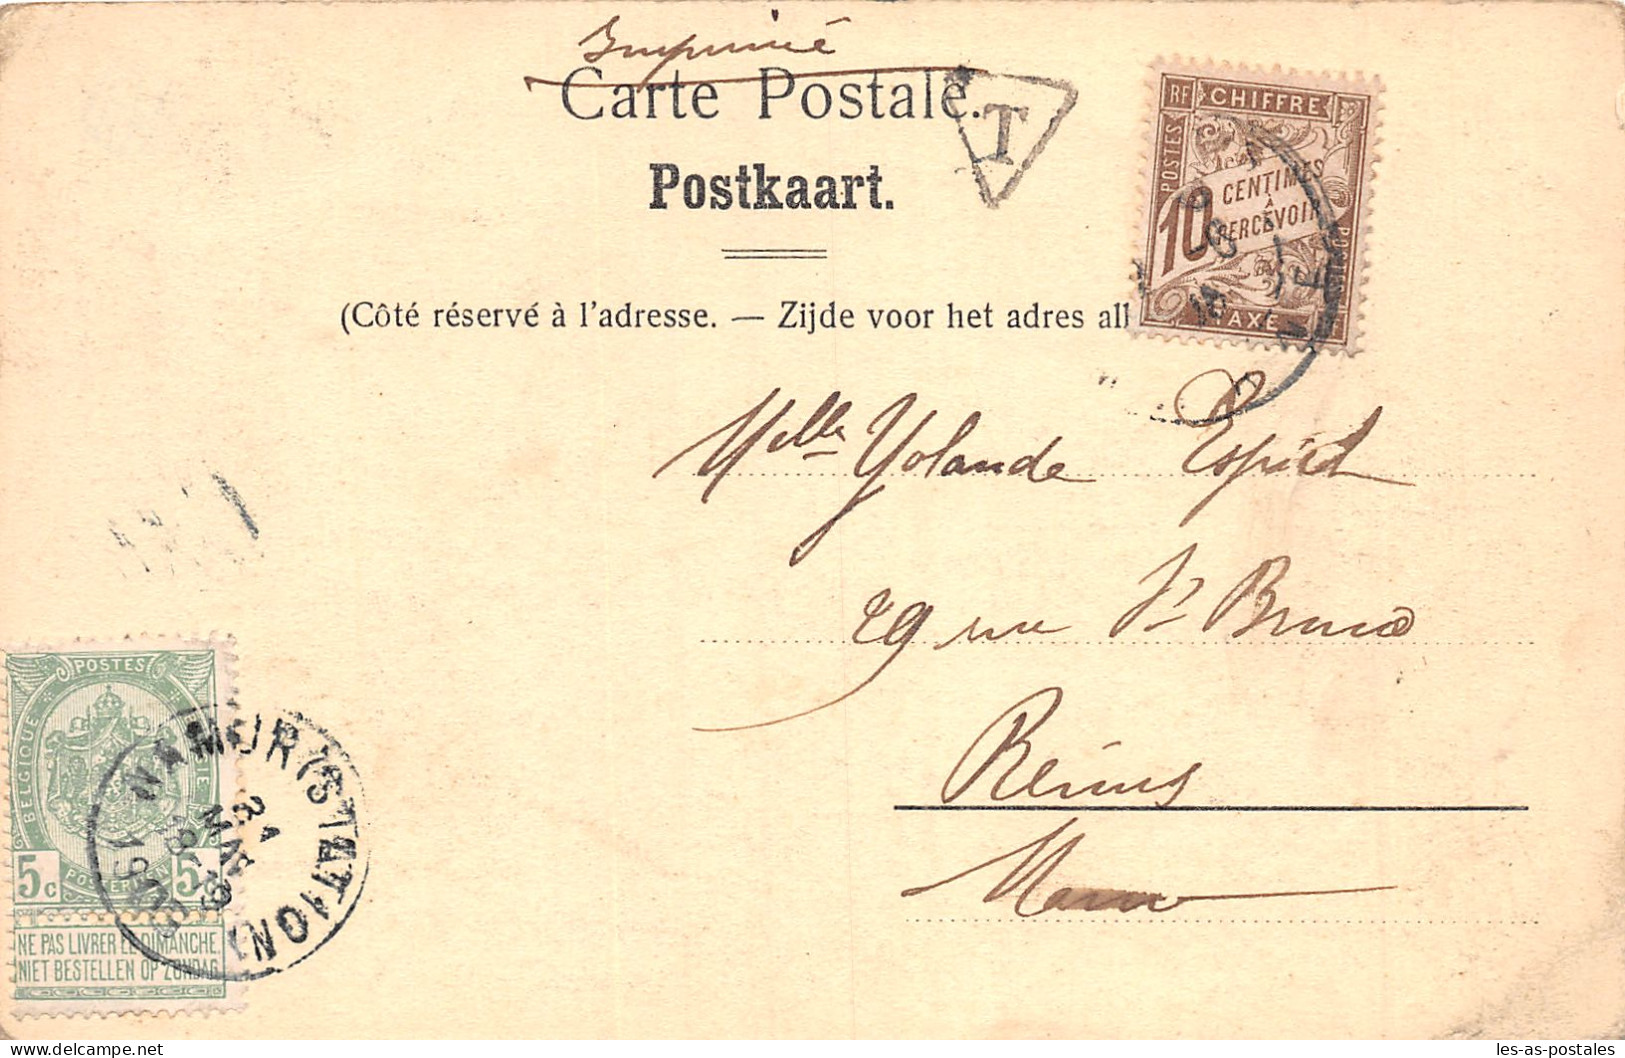 Imprimé
Carte Postale.
T
Postkaart.
(Côté réservé à l'adresse. — Zijde voor het adres all
RF CHIFFRE
POSTES
10 CENTIMES
À
PERCEVOIR
TAXE
Melle Yolande
29 rue St Bruno
Reims
Marne
POSTES
BELGIQUE
5c 5
POSTERIJEN
NE PAS LIVRER LE DIMANCHE
NIET BESTELLEN OP ZONDAG
NAMUR (STATION)
MAI
les-as-postales
© delcampe.net